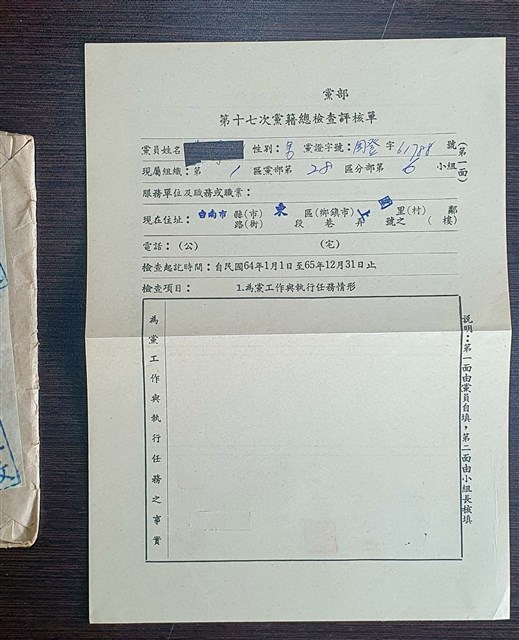 黨部
第十七次黨籍總檢查評核單
(第一面)
黨員姓名 性別:男 黨證字號:周登字61788號
現屬組織:第1區黨部第28區分部第6小組
服務單位及職務或職業:
現在住址:台南市縣(市)東區(鄉鎮市)里(村)鄰
路(街)段巷弄號之(樓)
電話:(公) (宅)
檢查起訖時間:自民國64年1月1日至65年12月31日止
檢查項目: 1.為黨工作與執行任務情形
為黨工作與執行任務之事實
說明:第一面由黨員自填,第二面由小組長核填